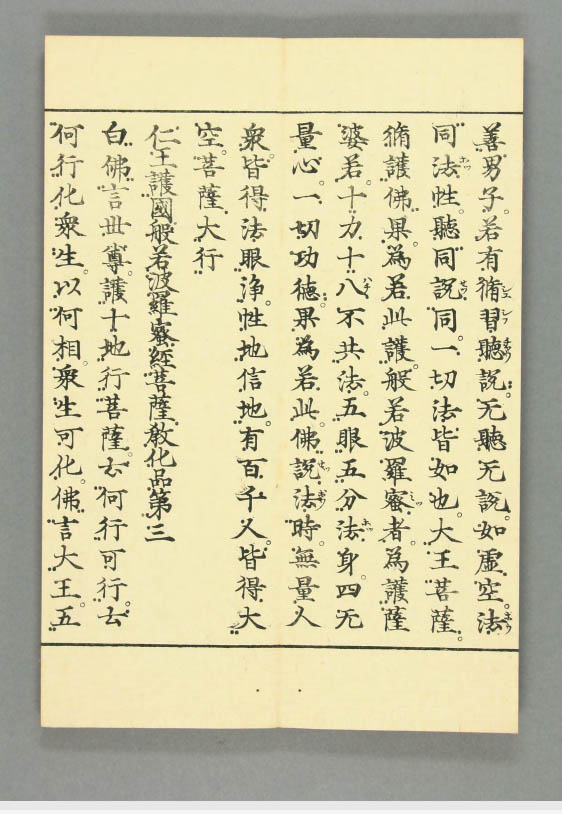 善男子若有脩習聽說无聽无說如虛空法
同法性聽同說同一切法皆如也大王菩薩
脩護佛果為若此護般若波羅蜜者為護薩
婆若十力十八不共法五眼五分法身四无
量心一切功德果為若此佛說法時無量人
衆皆得法眼淨性地信地有百千人皆得大
空菩薩大行
仁王護國般若波羅蜜經菩薩教化品第三
白佛言世尊護十地行菩薩云何行可行云
何行化衆生以何相衆生可化佛言大王五